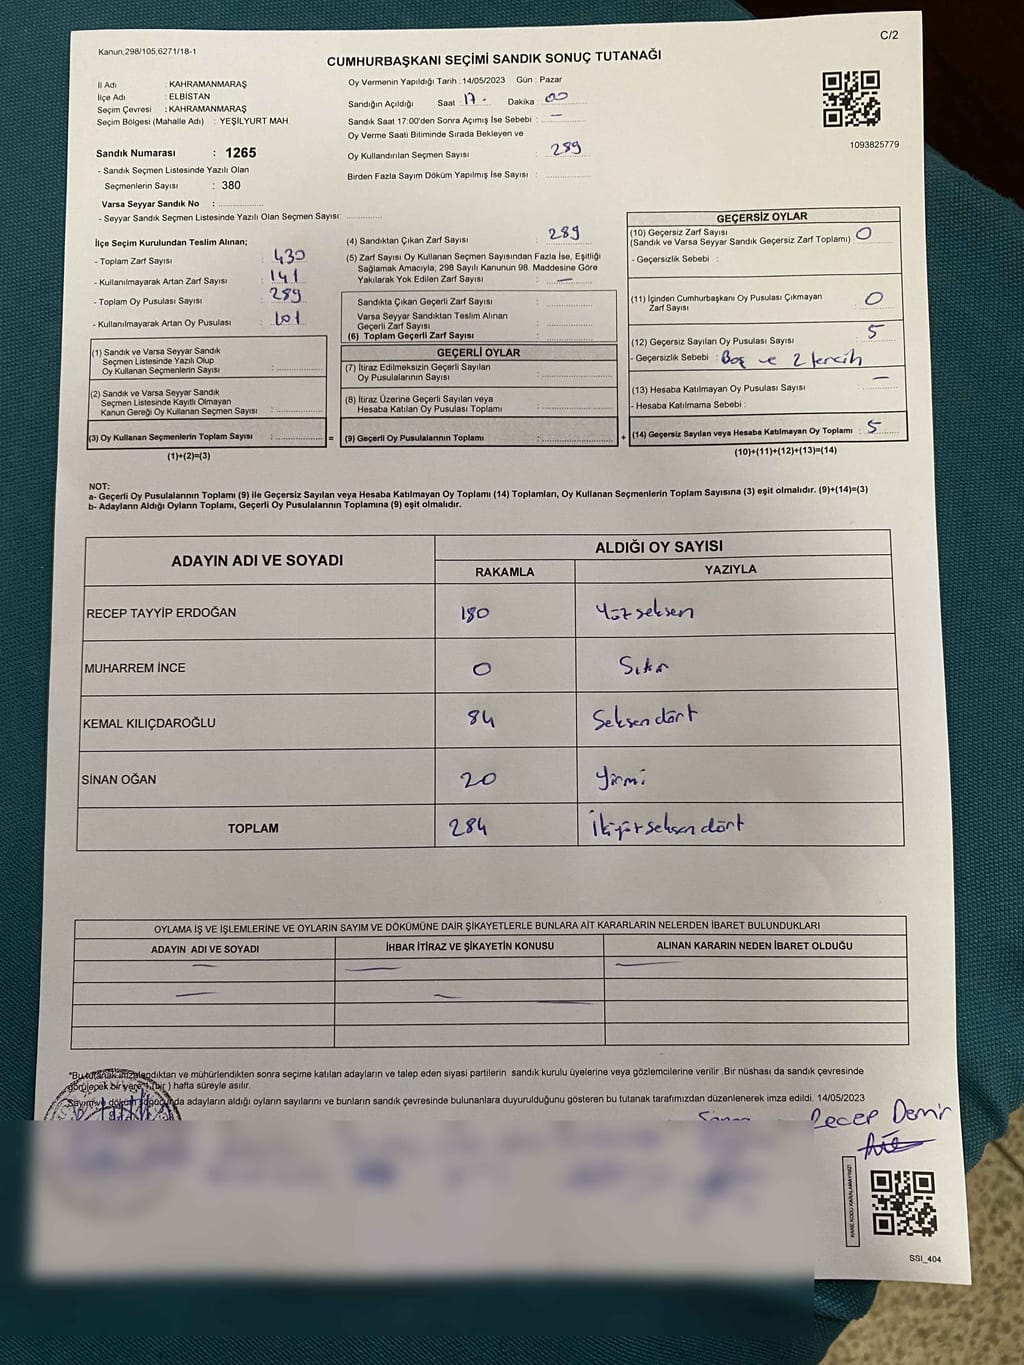 Kanun;298/105,6271/18-1
C/2
CUMHURBAŞKANI SEÇİMİ SANDIK SONUÇ TUTANAĞI
İl Adı : KAHRAMANMARAŞ
İlçe Adı : ELBİSTAN
Seçim Çevresi : KAHRAMANMARAŞ
Seçim Bölgesi (Mahalle Adı) : YEŞİLYURT MAH.
Sandık Numarası : 1265
- Sandık Seçmen Listesinde Yazılı Olan
Seçmenlerin Sayısı : 380
Varsa Seyyar Sandık No :
- Seyyar Sandık Seçmen Listesinde Yazılı Olan Seçmen Sayısı:
Oy Vermenin Yapıldığı Tarih : 14/05/2023 Gün : Pazar
Sandığın Açıldığı Saat : 17 Dakika : 00
Sandık Saat 17:00'den Sonra Açımış İse Sebebi : —
Oy Verme Saati Bitiminde Sırada Bekleyen ve
Oy Kullandırılan Seçmen Sayısı : 289
Birden Fazla Sayım Döküm Yapılmış İse Sayısı :
1093825779
İlçe Seçim Kurulundan Teslim Alınan;
- Toplam Zarf Sayısı : 430
- Kullanılmayarak Artan Zarf Sayısı : 141
- Toplam Oy Pusulası Sayısı : 289
- Kullanılmayarak Artan Oy Pusulası : 101
(1) Sandık ve Varsa Seyyar Sandık
Seçmen Listesinde Yazılı Olup
Oy Kullanan Seçmenlerin Sayısı :
(2) Sandık ve Varsa Seyyar Sandık
Seçmen Listesinde Kayıtlı Olmayan
Kanun Gereği Oy Kullanan Seçmen Sayısı :
(3) Oy Kullanan Seçmenlerin Toplam Sayısı : =
(1)+(2)=(3)
(4) Sandıktan Çıkan Zarf Sayısı : 289
(5) Zarf Sayısı Oy Kullanan Seçmen Sayısından Fazla İse, Eşitliği
Sağlamak Amacıyla; 298 Sayılı Kanunun 98. Maddesine Göre
Yakılarak Yok Edilen Zarf Sayısı : —
Sandıkta Çıkan Geçerli Zarf Sayısı :
Varsa Seyyar Sandıktan Teslim Alınan
Geçerli Zarf Sayısı :
(6) Toplam Geçerli Zarf Sayısı :
GEÇERLİ OYLAR
(7) İtiraz Edilmeksizin Geçerli Sayılan
Oy Pusulalarının Sayısı :
(8) İtiraz Üzerine Geçerli Sayılan veya
Hesaba Katılan Oy Pusulası Toplamı :
(9) Geçerli Oy Pusulalarının Toplamı : +
GEÇERSİZ OYLAR
(10) Geçersiz Zarf Sayısı
(Sandık ve Varsa Seyyar Sandık Geçersiz Zarf Toplamı) : 0
- Geçersizlik Sebebi :
(11) İçinden Cumhurbaşkanı Oy Pusulası Çıkmayan
Zarf Sayısı : 0
(12) Geçersiz Sayılan Oy Pusulası Sayısı : 5
- Geçersizlik Sebebi : Boş ve 2 tercih
(13) Hesaba Katılmayan Oy Pusulası Sayısı : —
- Hesaba Katılmama Sebebi :
(14) Geçersiz Sayılan veya Hesaba Katılmayan Oy Toplamı : 5
(10)+(11)+(12)+(13)=(14)
NOT:
a- Geçerli Oy Pusulalarının Toplamı (9) ile Geçersiz Sayılan veya Hesaba Katılmayan Oy Toplamı (14) Toplamları, Oy Kullanan Seçmenlerin Toplam Sayısına (3) eşit olmalıdır. (9)+(14)=(3)
b- Adayların Aldığı Oyların Toplamı, Geçerli Oy Pusulalarının Toplamına (9) eşit olmalıdır.
ADAYIN ADI VE SOYADI ALDIĞI OY SAYISI
RAKAMLA YAZIYLA
RECEP TAYYİP ERDOĞAN 180 Yüz seksen
MUHARREM İNCE 0 Sıfır
KEMAL KILIÇDAROĞLU 84 Seksen dört
SİNAN OĞAN 20 Yirmi
TOPLAM 284 İkiyüz seksen dört
OYLAMA İŞ VE İŞLEMLERİNE VE OYLARIN SAYIM VE DÖKÜMÜNE DAİR ŞİKAYETLERLE BUNLARA AİT KARARLARIN NELERDEN İBARET BULUNDUKLARI
ADAYIN ADI VE SOYADI İHBAR İTİRAZ VE ŞİKAYETİN KONUSU ALINAN KARARIN NEDEN İBARET OLDUĞU
*Bu tutanak imzalandıktan ve mühürlendikten sonra seçime katılan adayların ve talep eden siyasi partilerin sandık kurulu üyelerine veya gözlemcilerine verilir .Bir nüshası da sandık çevresinde
görülecek bir yere 1 (bir ) hafta süreyle asılır.
Sayım ve döküm sonucunda adayların aldığı oyların sayısını ve bunların sandık çevresinde bulunanlara duyurulduğunu gösteren bu tutanak tarafımızdan düzenlenerek imza edildi. 14/05/2023
Recep Demir
KARE KODU KARALAMAYINIZ!
SSI_404